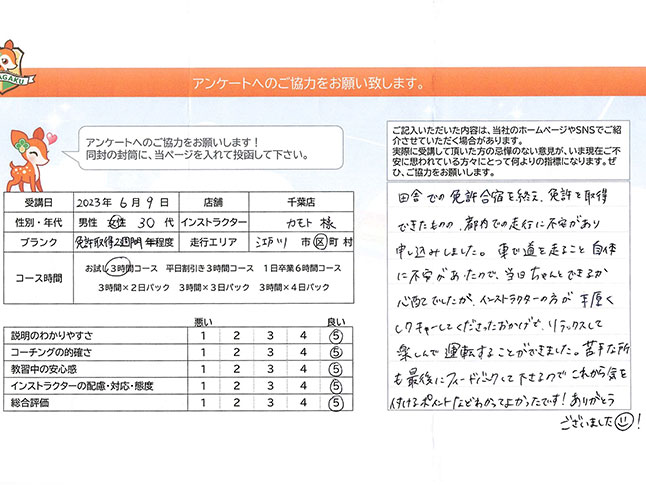 AGAKU
アンケートへのご協力をお願い致します。
アンケートへのご協力をお願いします！
同封の封筒に、当ページを入れて投函して下さい。
受講日 2023年 6月 9日 店舗 千葉店
性別・年代 男性 女性 30代 インストラクター カモト 様
ブランク 免許取得2週間 年程度 走行エリア 江戸川 市区町村
コース時間
お試し3時間コース 平日割引き3時間コース 1日卒業6時間コース
3時間×2日パック 3時間×3日パック 3時間×4日パック
悪い 良い
説明のわかりやすさ 1 2 3 4 5
コーチングの的確さ 1 2 3 4 5
教習中の安心感 1 2 3 4 5
インストラクターの配慮・対応・態度 1 2 3 4 5
総合評価 1 2 3 4 5
ご記入いただいた内容は、当社のホームページやSNSでご紹
介させていただく場合があります。
実際に受講して頂いた方の忌憚のない意見が、いま現在ご不
安に思われている方々にとって何よりの指標になります。ぜ
ひ、ご協力をお願いします。
田舎での免許合宿を終え、免許を取得
できたものの、都内での走行に不安があり
申し込みしました。車で道を走ること自体
に不安があったので、当日ちゃんとできるか
心配でしたが、インストラクターの方が手厚く
レクチャーしてくださったおかげで、リラックスして
楽しんで運転することができました。苦手な所
も最後にフィードバックして下さるのでこれから気を
付けるポイントなどわかってよかったです！ありがとう
ございました！